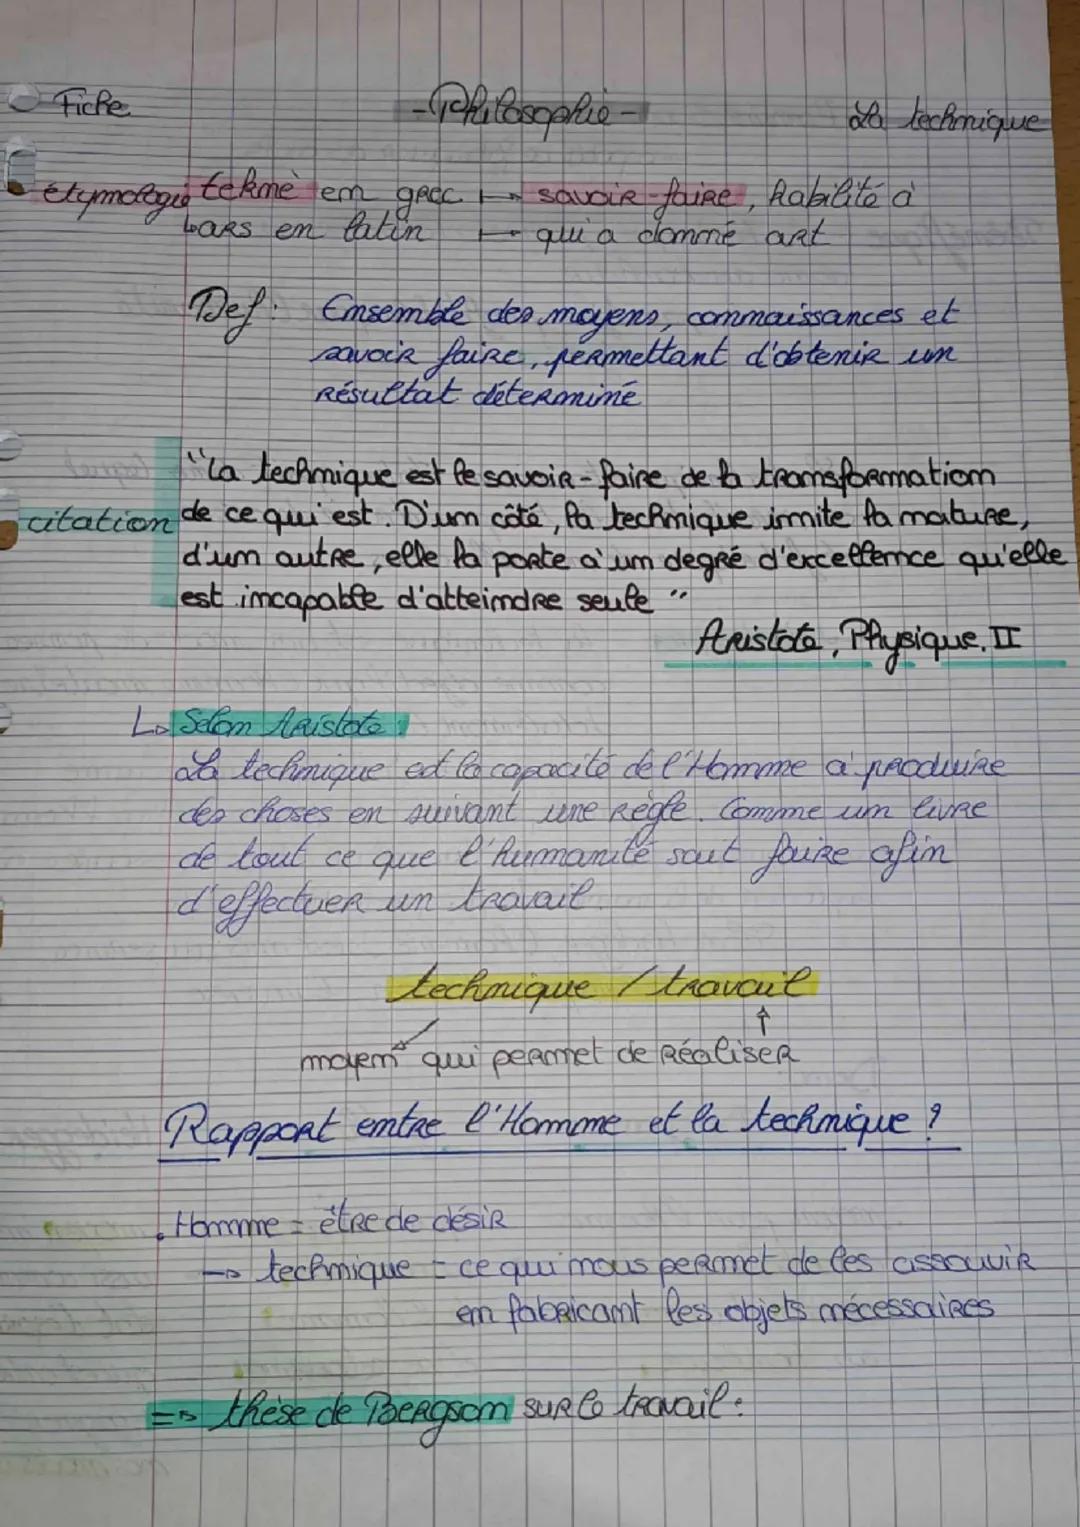 Fiche
-Philosophie-
La technique
étymologie
tekmè en grec → savoir-faire, habilité à
↳ ars en latin → qui a donné art
Def: Ensemble des moyens, connaissances et
savoir faire, permettant d'obtenir un
résultat déterminé
citation
"La technique est le savoir-faire de la transformation
de ce qui est. D'un côté, la technique imite la nature,
d'un autre, elle la porte à un degré d'excellence qu'elle
est incapable d'atteindre seule"
Aristote, Physique, II
↳ Selon Aristote:
La technique est la capacité de l'Homme à produire
des choses en suivant une règle. Comme un livre
de tout ce que l'humanité sait faire afin
d'effectuer un travail.
technique / travail
moyen qui permet de réaliser
Rapport entre l'Homme et la technique?
. Homme = être de désir
→ technique = ce qui nous permet de les assouvir
en fabricant les objets nécessaires
=> thèse de Bergson sur le travail: